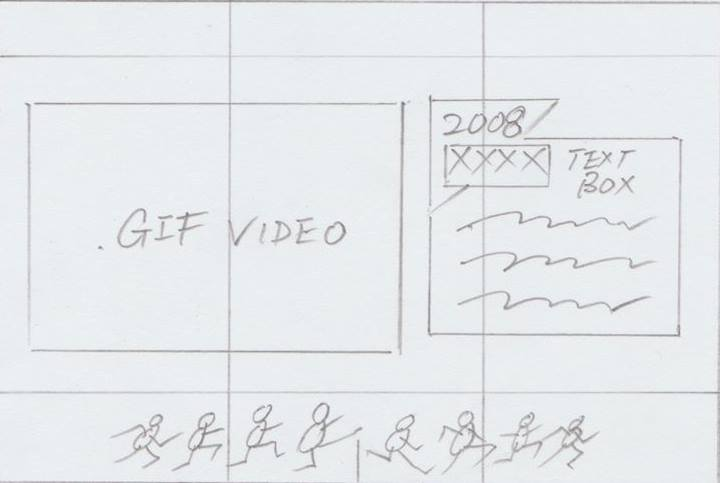 .GIF VIDEO
2008
XXXX
TEXT
BOX